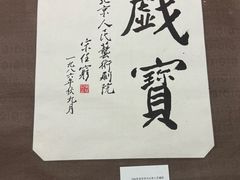 戲寶
北京人民藝術劇院
宋任窮
一九八六年秋九月